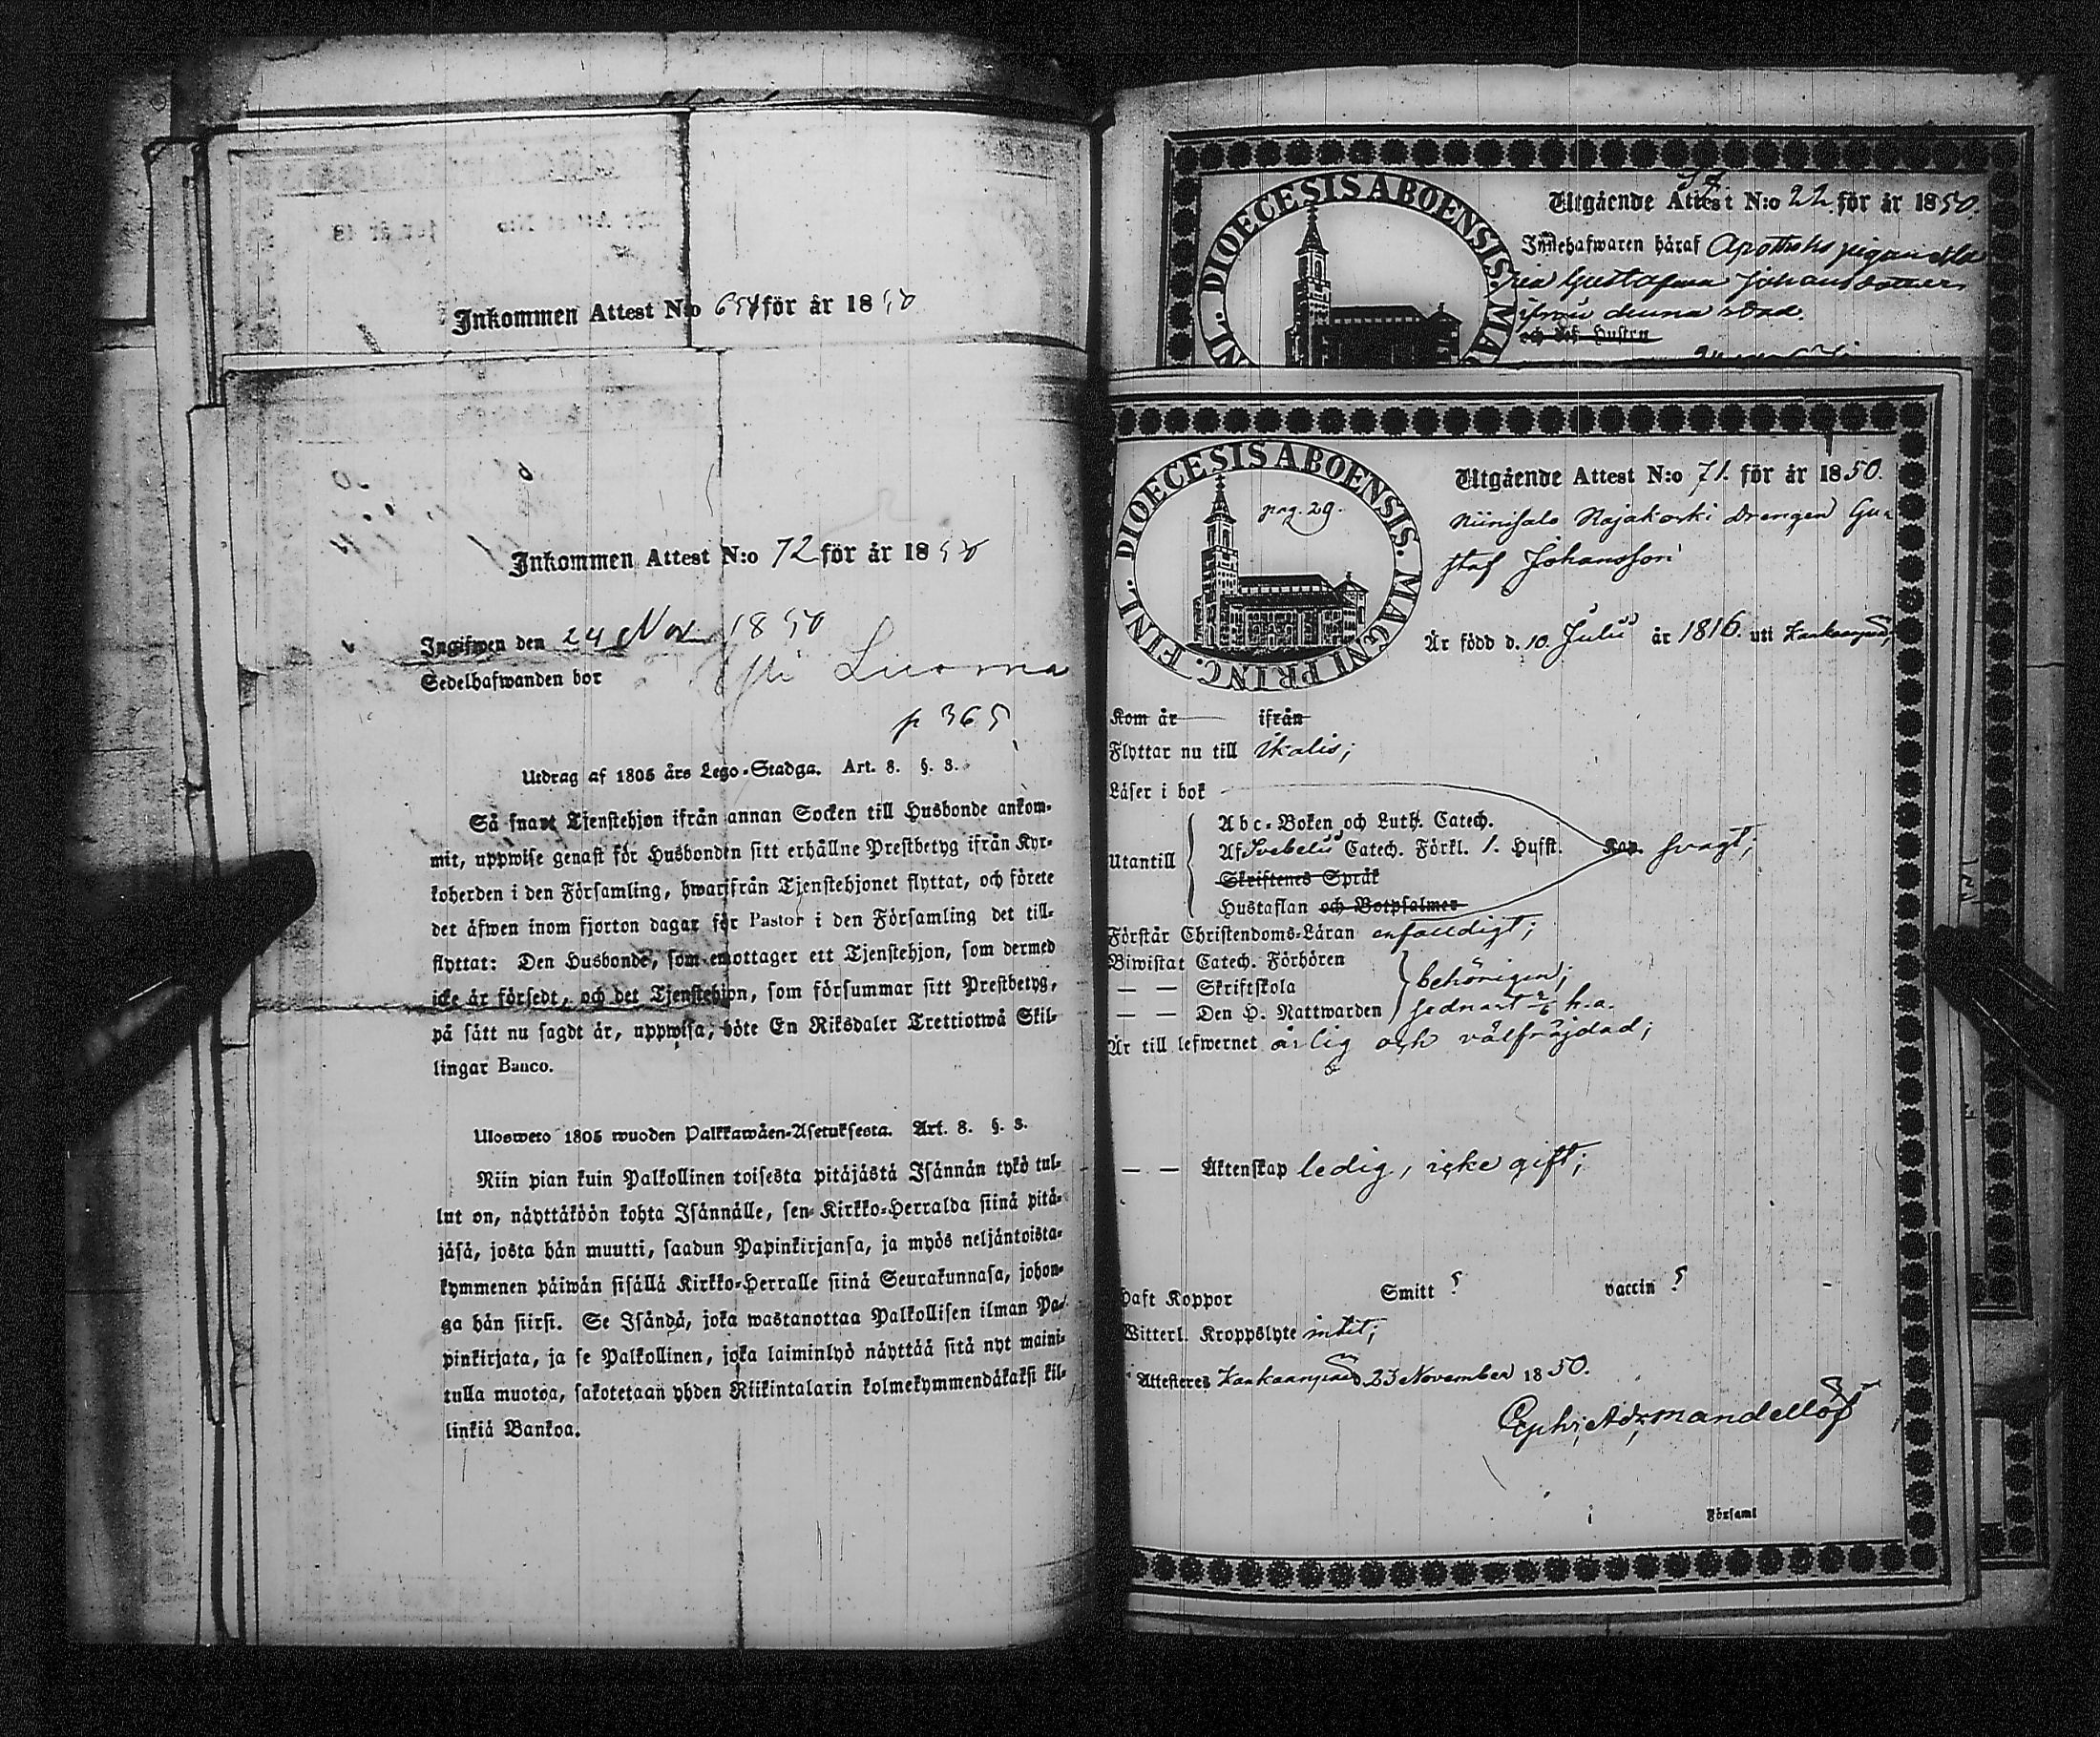 Inkommen Attest N:o 654 för år 1850
Inkommen Attest N:o 72 för år 1850
Ingifwen den 24 Nov 1850
Sedelhafwanden bor Luoma
p 365
Utdrag af 1805 års Lego-Stadga. Art. 8. §. 3.
Så snart Tjenstehjon ifrån annan Socken till Husbonde ankom-
mit, uppwise genast för Husbonden sitt erhållne Prestbetyg ifrån Kyr-
koherden i den Församling, hwarifrån Tjenstehjonet flyttat, och förete
det äfwen inom fjorton dagar för Pastor i den Församling det till-
flyttat: Den Husbonde, som emottager ett Tjenstehjon, som dermed
icke är försedt, och det Tjenstehjon, som försummar sitt Prestbetyg,
på sätt nu sagdt är, uppwisa, böte En Riksdaler Trettiotwå Skil-
lingar Banco.
Ulosweto 1805 wuoden Palkkawäen-Asetuksesta. Art. 8. §. 3.
Niin pian kuin Palkollinen toisesta pitäjästä Isännän tykö tul-
lut on, näyttäköön kohta Isännälle, sen Kirkko-Herralda siinä pitä-
jäsä, josta hän muutti, saadun Papinkirjansa, ja myös neljäntoista-
kymmenen päiwän sisällä Kirkko-Herralle siinä Seurakunnasa, johon-
ga hän siirsi. Se Isändä, joka wastanottaa Palkollisen ilman Pa-
pinkirjata, ja se Palkollinen, joka laiminlyö näyttää sitä nyt maini-
tulla muotoa, sakotetaan yhden Riikintalarin kolmekymmendäkaksi kil-
linkiä Bankoa.
DIOECESIS ABOENSIS. MAG
Utgående Attest N:o 22 för år 1850.
Innehafwaren häraf Apotheks pigan Ma
ria Gustafwa Johansdotter
ifrån denna Stad.
och dess Hustru
DIOECESIS ABOENSIS. MAGNI PRINC. FINL.
pag. 29.
Utgående Attest N:o 71. för år 1850.
Niinisalo Rajakoski drengen Gu-
staf Johansson
Är född d. 10. Julii år 1816. uti Kankaanpää,
Kom år ifrån
Flyttar nu till Ikalis;
Läser i bok
Utantill
Abc-Boken och Luth. Catech.
Af Svebelii Catech. Förkl. 1. Hufst. Kap. svagt;
Skriftenes Språk
Hustaflan och Botpsalmer
Förstår Christendoms-Läran enfaldigt;
Biwistat Catech. Förhören
— — Skriftskola behörigen;
— — Den H. Nattwarden sednast 2/6 h.a.
Är till lefwernet ärlig och välfrägdad;
— — Äktenskap ledig, icke gift;
Haft Koppor Smitt ? vaccin ?
Witterl. Kroppslyte intet;
Attesteres Kankaanpää d. 23 November 1850.
i Församl